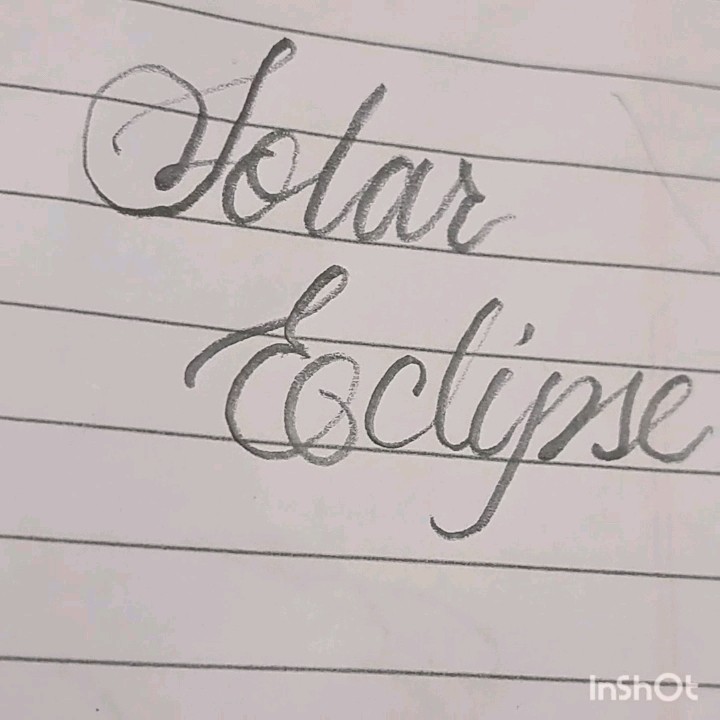 Solar
Eclipse
InShOt